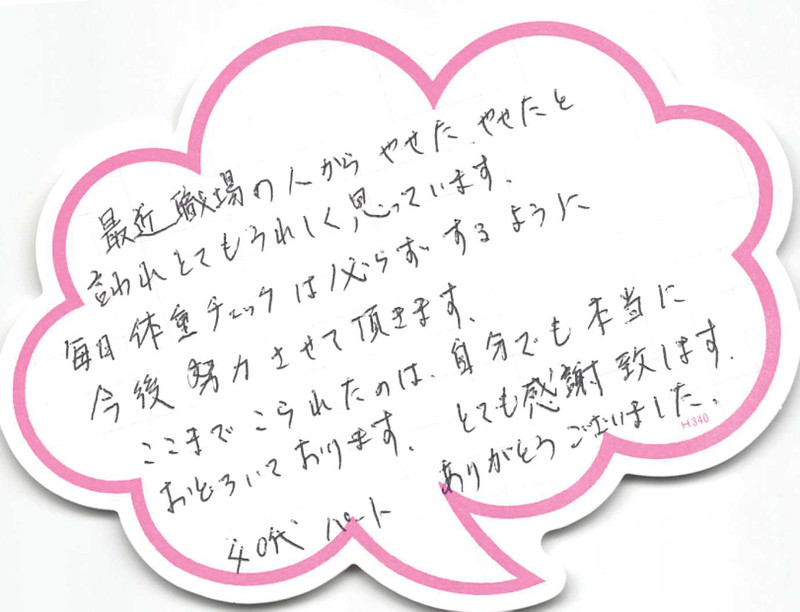 最近職場の人からやせた、やせたと
言われとてもうれしく思っています。
毎日体重チェックは必らずするように
今後努力させて頂きます。
ここまでこられたのは、自分でも本当に
おどろいております。とても感謝致します。
ありがとうございました。
40代 パート
H340